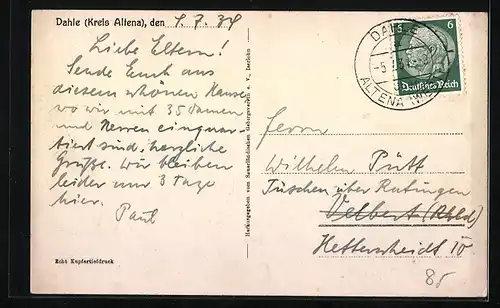 Dahle (Kreis Altena), den 5.7.34
Liebe Eltern!
Sende Euch aus
diesem schönen Hause
wo wir mit 35 Damen
und Herren einquar-
tiert sind herzliche
Grüße. Wir bleiben
leider nur 3 Tage
hier.
Paul
Echt Kupfertiefdruck
Herausgegeben vom Sauerländischen Gebirgsverein e. V., Iserlohn
DAHLE
-5.7.
ALTENA
6
Deutsches Reich
Herrn
Wilhelm Pütt
Tüschen über Ratingen
Velbert (Rhld)
Hetterscheidt 10
85